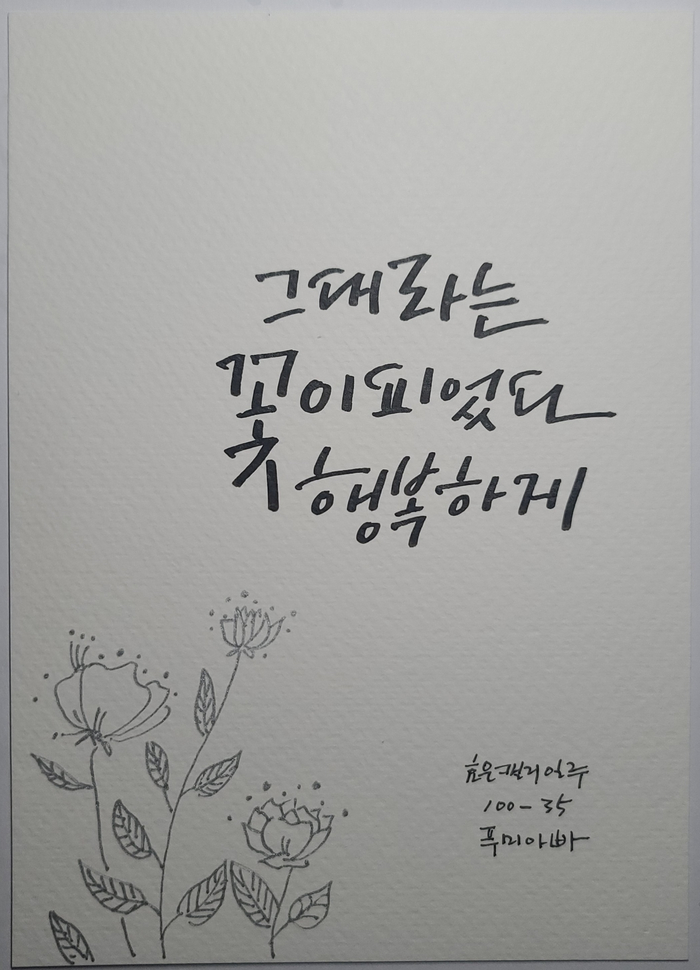 그대라는
꽃이피었다
행복하게
100-35
푸미아빠